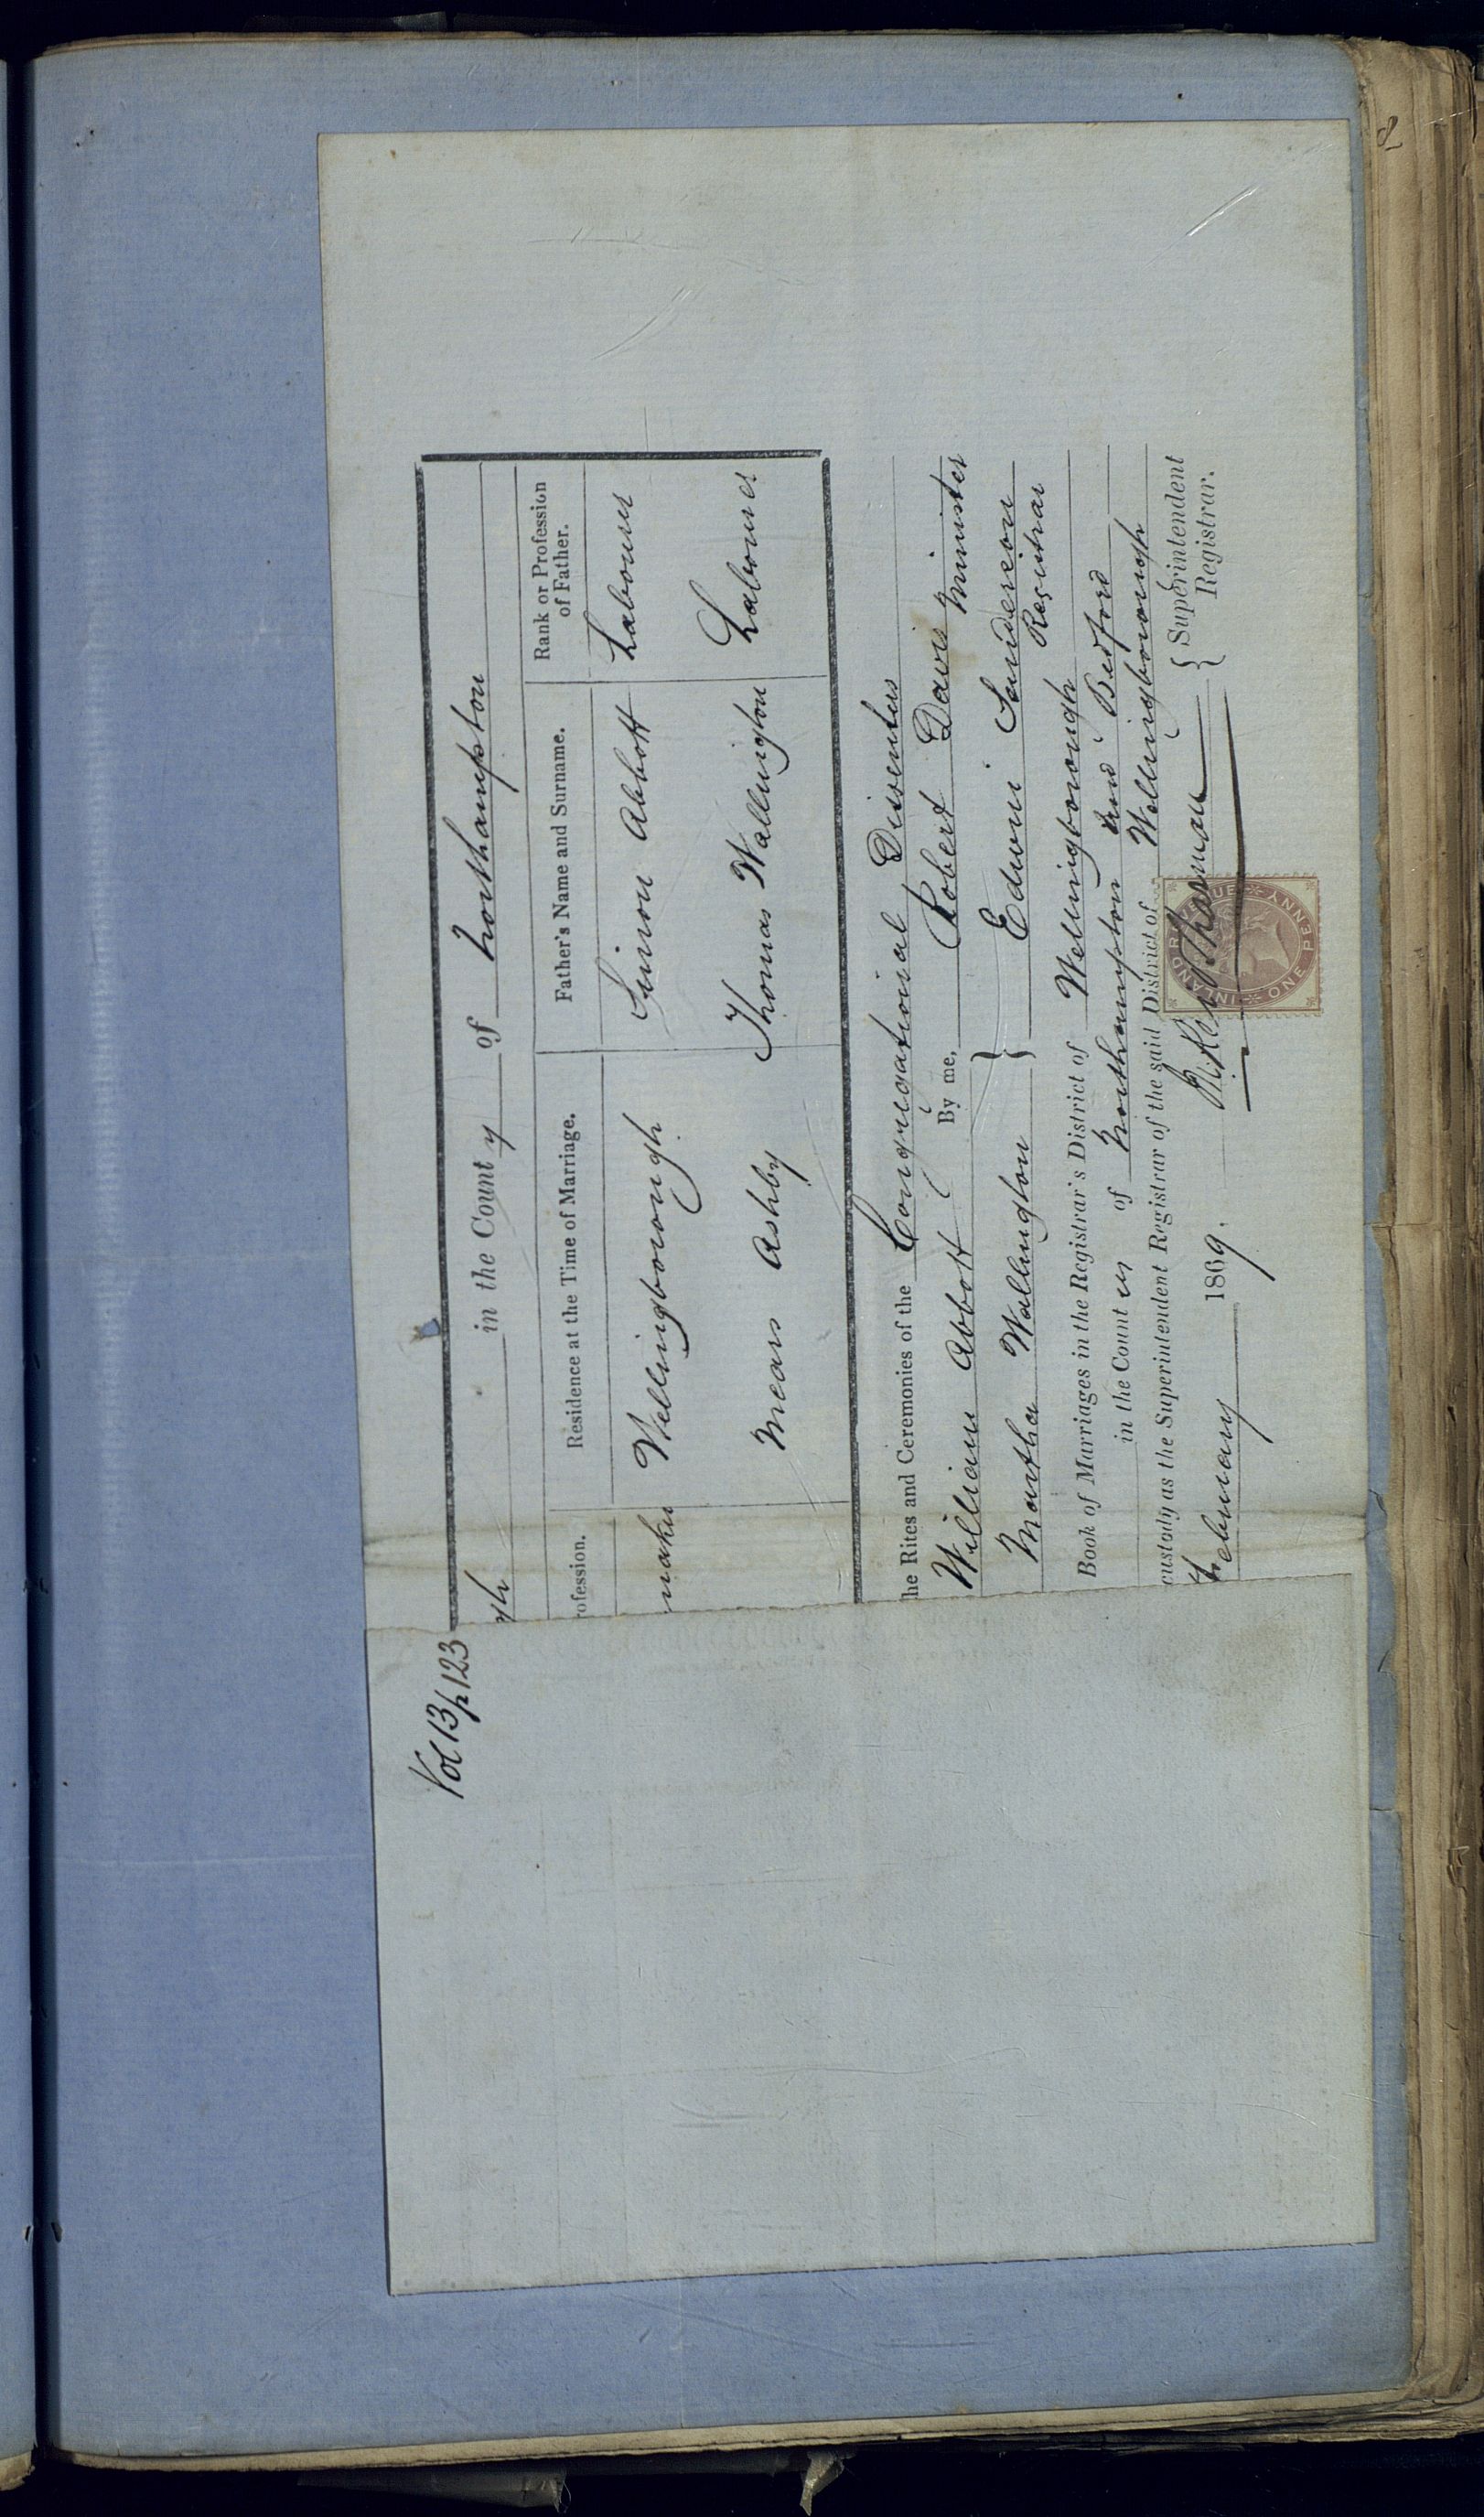 Vol 13 p 123
gh in the County of Northampton
rofession. Residence at the Time of Marriage. Father's Name and Surname. Rank or Profession
of Father.
maker Wellingborough Simon Abbott Labourer
Mears Ashby Thomas Wallington Labourer
he Rites and Ceremonies of the Congregational Dissenters
William Abbott By me, Robert Davis Minister
Martha Wallington } Edwin Sanderson
Registrar
Book of Marriages in the Registrar's District of Wellingborough
in the Counties of Northampton and Bedford
custody as the Superintendent Registrar of the said District of Wellingborough
February 1869. Sharman { Superintendent
Registrar.
INLAND REVENUE ONE PENNY
8